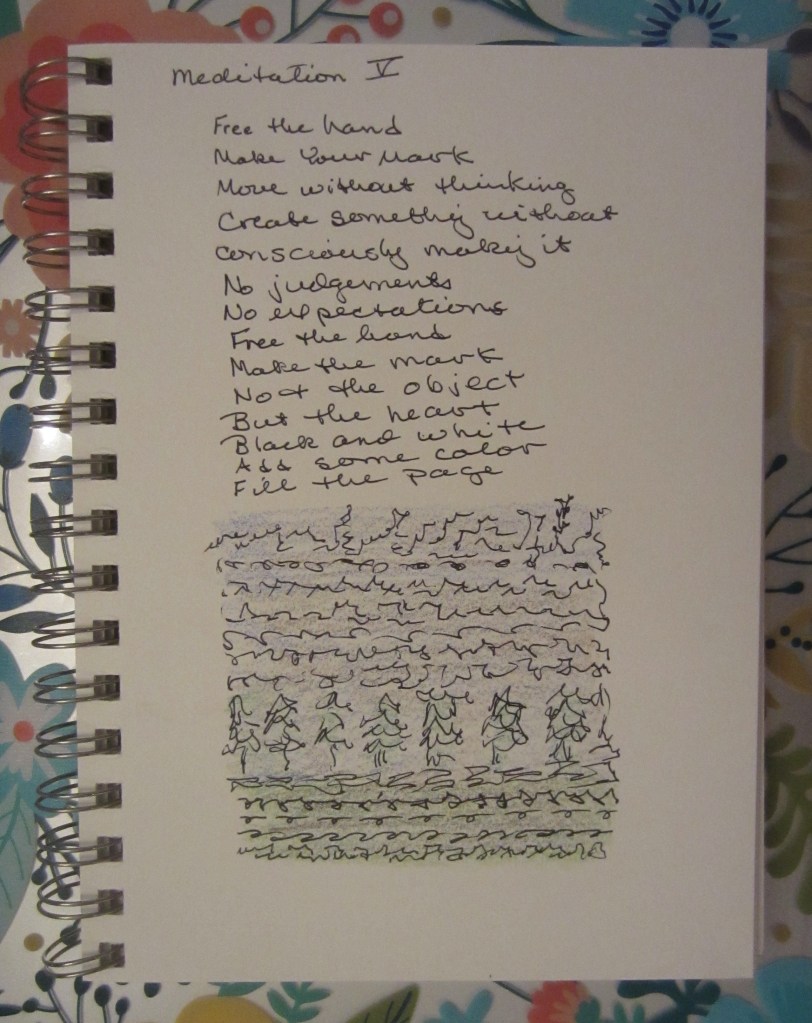 Meditation V
Free the hand
Make Your Mark
Move without thinking
Create somethig without
consciously makig it
No judgements
No expectations
Free the hand
Make the mark
Not the object
But the heart
Black and white
Add some color
Fill the page